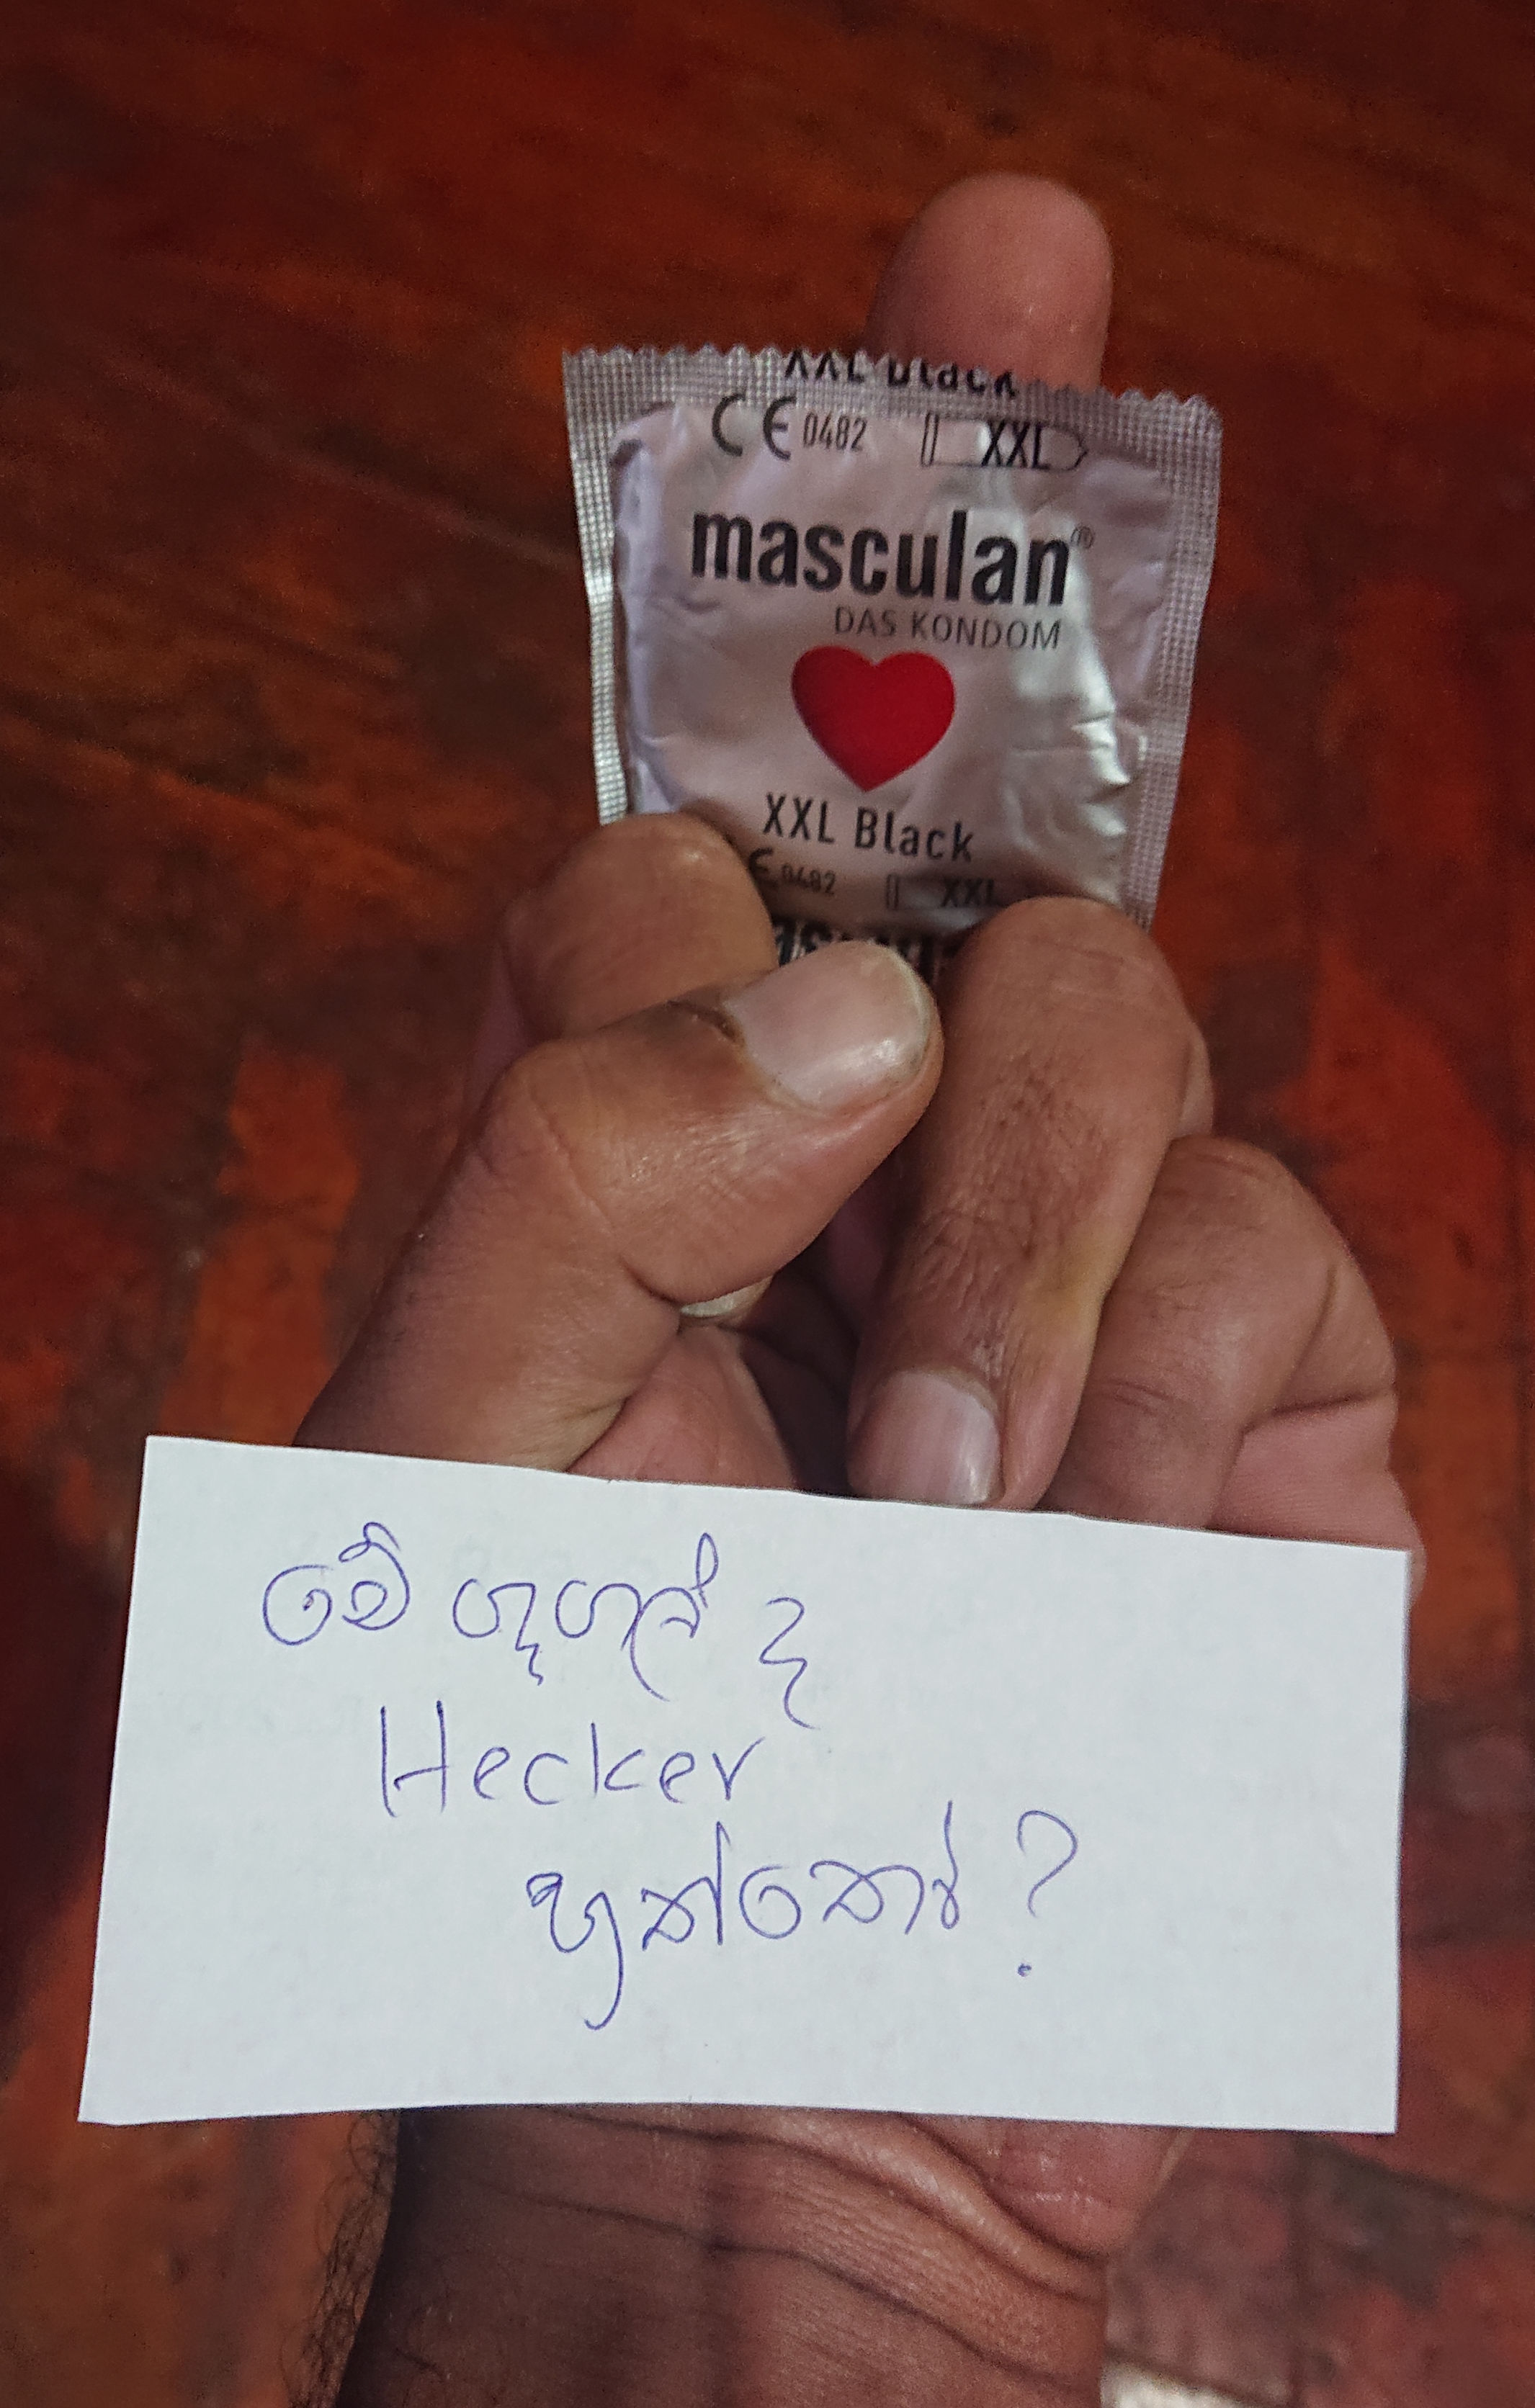 XXL Black
CE 0482 XXL
masculan®
DAS KONDOM
XXL Black
CE 0482 XXL
මේ ගූගල් ද
Hecker
හුත්තෝ ?